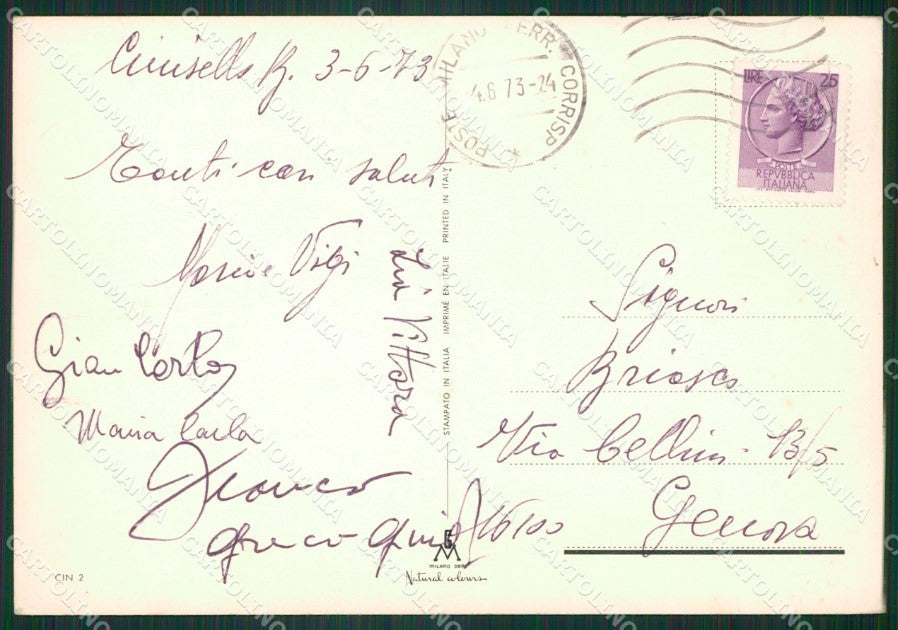 Cinisello B. 3-6-73
Tanti cari saluti
Maria Vigi
Gian Carlo
Maria Carla
Franco
Lui Vittora
POSTE MILANO FERR. CORRISP
4.6 73-24
LIRE 25
POSTE
REPVBBLICA
ITALIANA
STAMPATO IN ITALIA IMPRIMÉ EN ITALIE PRINTED IN ITALY
Signori
Briasco
Via Cellini 13/5
16100 Genova
CIN 2
MILANO
Natural colours
CARTOLINOMANIA